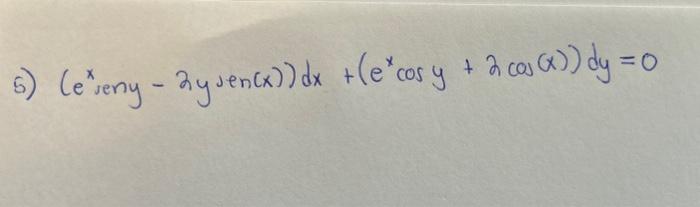 5) (eˣseny - 2ysen(x))dx + (eˣcosy + 2cos(x))dy = 0